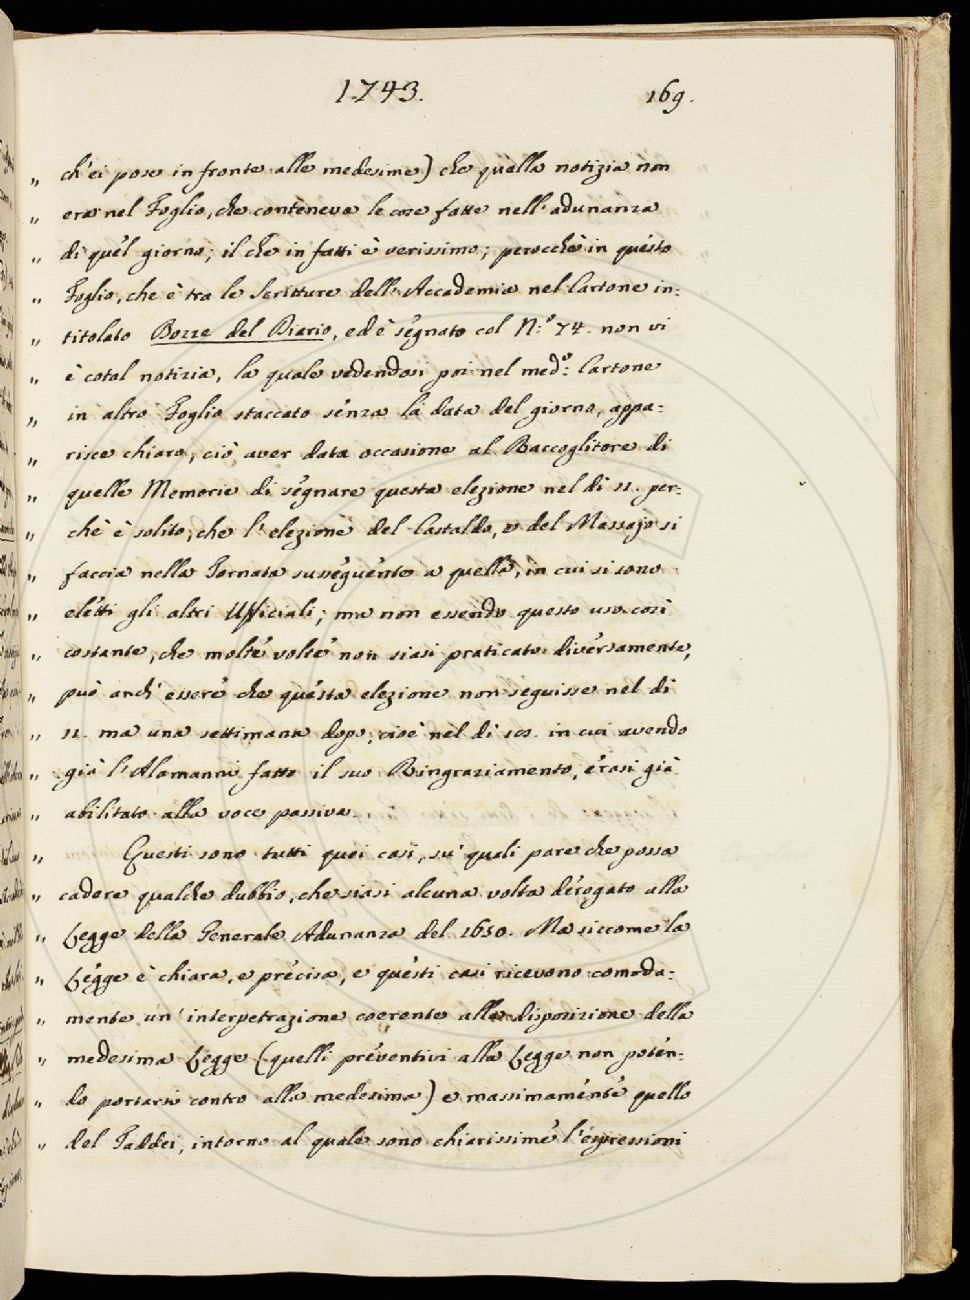 1743.
169.
„ ch'ei pose in fronte alle medesime) che quella notizia non
„ era nel Foglio, che conteneva le cose fatte nell'adunanza
„ di quel giorno; il che in fatti è verissimo; perocchè in questo
„ Foglio, che è tra le Scritture dell'Accademia nel Cartone in:
„ titolato Bozze del Diario, ed è segnato col N.º 74. non vi
„ è cotal notizia, la quale vedendosi poi nel med.º Cartone
„ in altro Foglio staccato senza la data del giorno, appa:
„ risce chiaro, ciò aver data occasione al Raccoglitore di
„ quelle Memorie di segnare questa elezione nel dì 11. per:
„ chè è solito, che l'elezione del Castaldo, o del Massajo si
„ faccia nella Tornata susseguente a quella, in cui si sono
„ eletti gli altri Ufficiali; ma non essendo questo uso così
„ costante, che molte volte non siasi praticato diversamente,
„ può anch'essere che questa elezione non seguisse nel dì
„ 11. ma una settimana dopo, cioè nel dì 18. in cui avendo
„ già l'Alamanni fatto il suo Ringraziamento, erasi già
„ abilitato alla voce passiva.
„ Questi sono tutti quei casi, su' quali pare che possa
„ cadere qualche dubbio, che siasi alcuna volta derogato alla
„ Legge della Generale Adunanza del 1650. Ma siccome la
„ Legge è chiara, e precisa, e questi casi ricevono comoda:
„ mente un'interpetrazione coerente alla disposizione della
„ medesima Legge (quelli preventivi alla Legge non poten:
„ do portarsi contro alla medesima) e massimamente quello
„ del Taddei, intorno al quale sono chiarissime l'espressioni